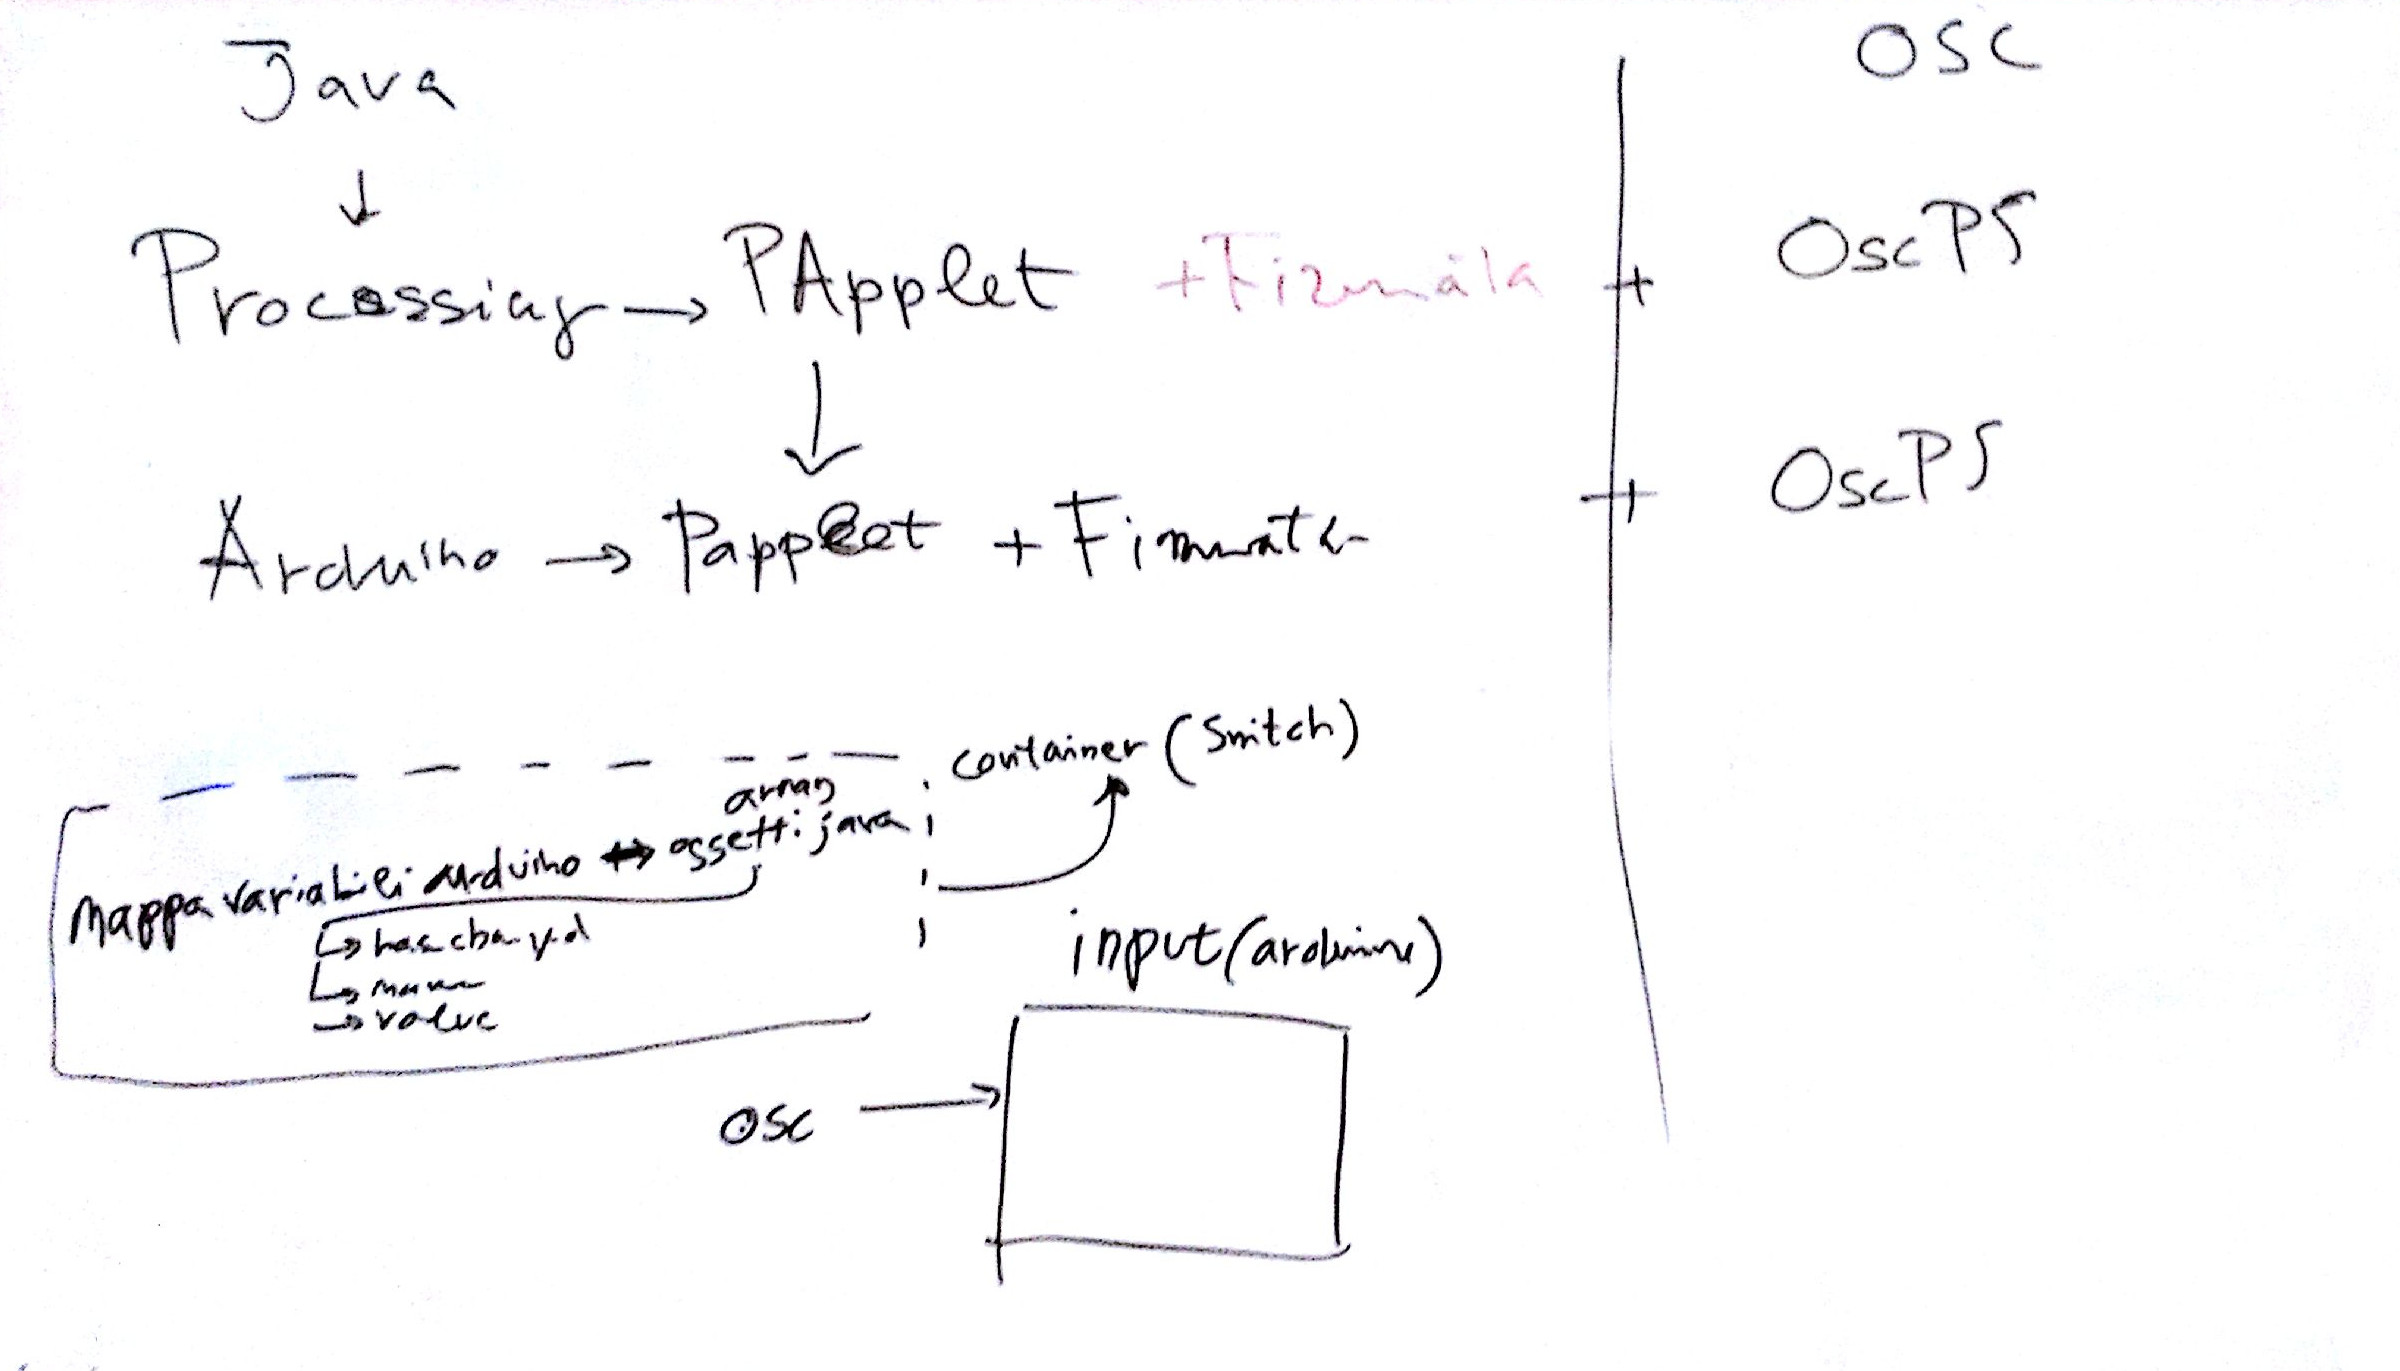 Java
OSC
↓
Processing → PApplet + Firmata + OscP5
↓
Arduino → Papplet + Firmata + OscP5
container (Switch)
array
Mappa variabili arduino ↔ oggetti java
↳ has changed
↳ name
→ value
input (arduino)
OSC →